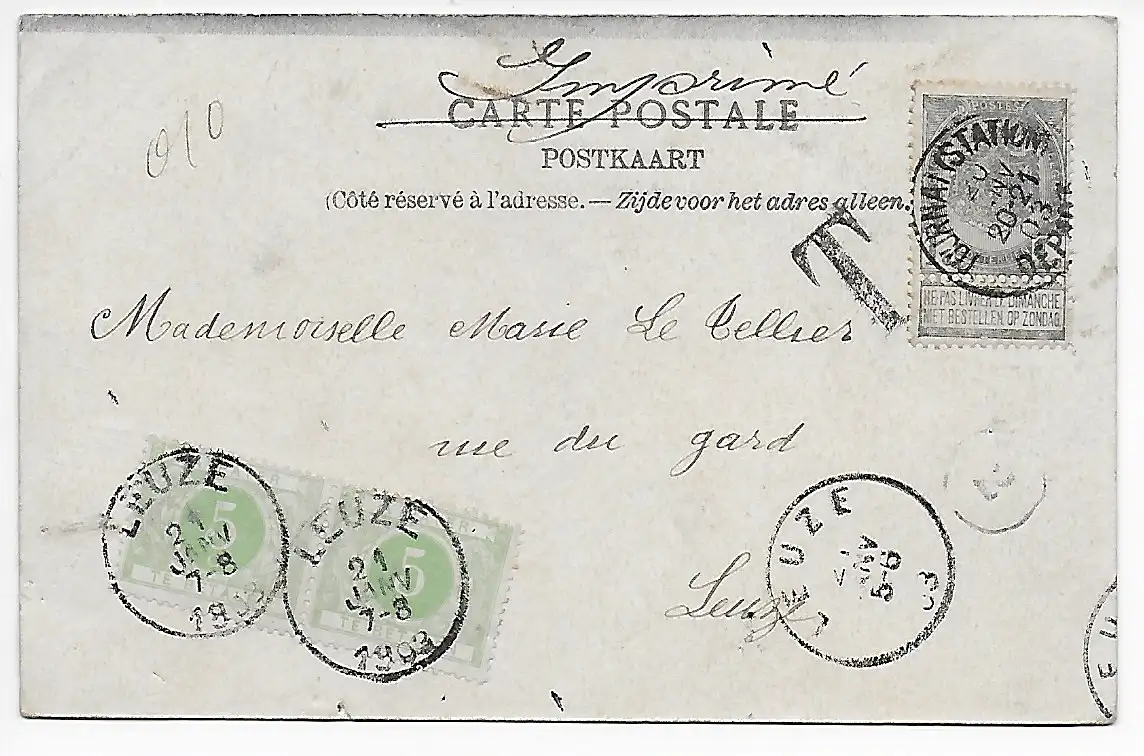 Imprimé
CARTE POSTALE
POSTKAART
(Côté réservé à l'adresse. — Zijde voor het adres alleen.)
010
POSTES
TOURNAI (STATION)
20-21
03
DEPART
NE PAS LIVRER LE DIMANCHE
NIET BESTELLEN OP ZONDAG
T
Mademoiselle Marie Le Tellier
rue du gard
Leuze
LEUZE
21
JANV
7-8
5
LEUZE
21
JANV
7-8
1903
5
LEUZE
5-6
03
EU